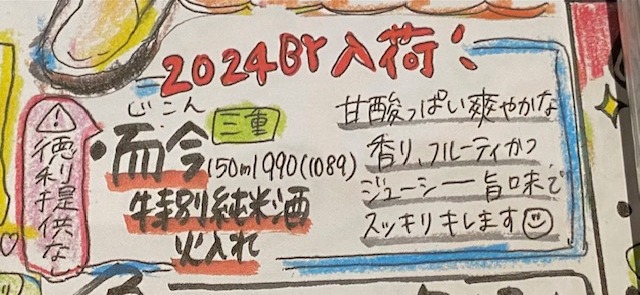 2024BY入荷!
⚠徳利提供なし
じこん
・而今
三重
150ml990(1089)
特別純米酒
火入れ
甘酸っぱい爽やかな
香り、フルーティかつ
ジューシー一旨味で
スッキリキします☺